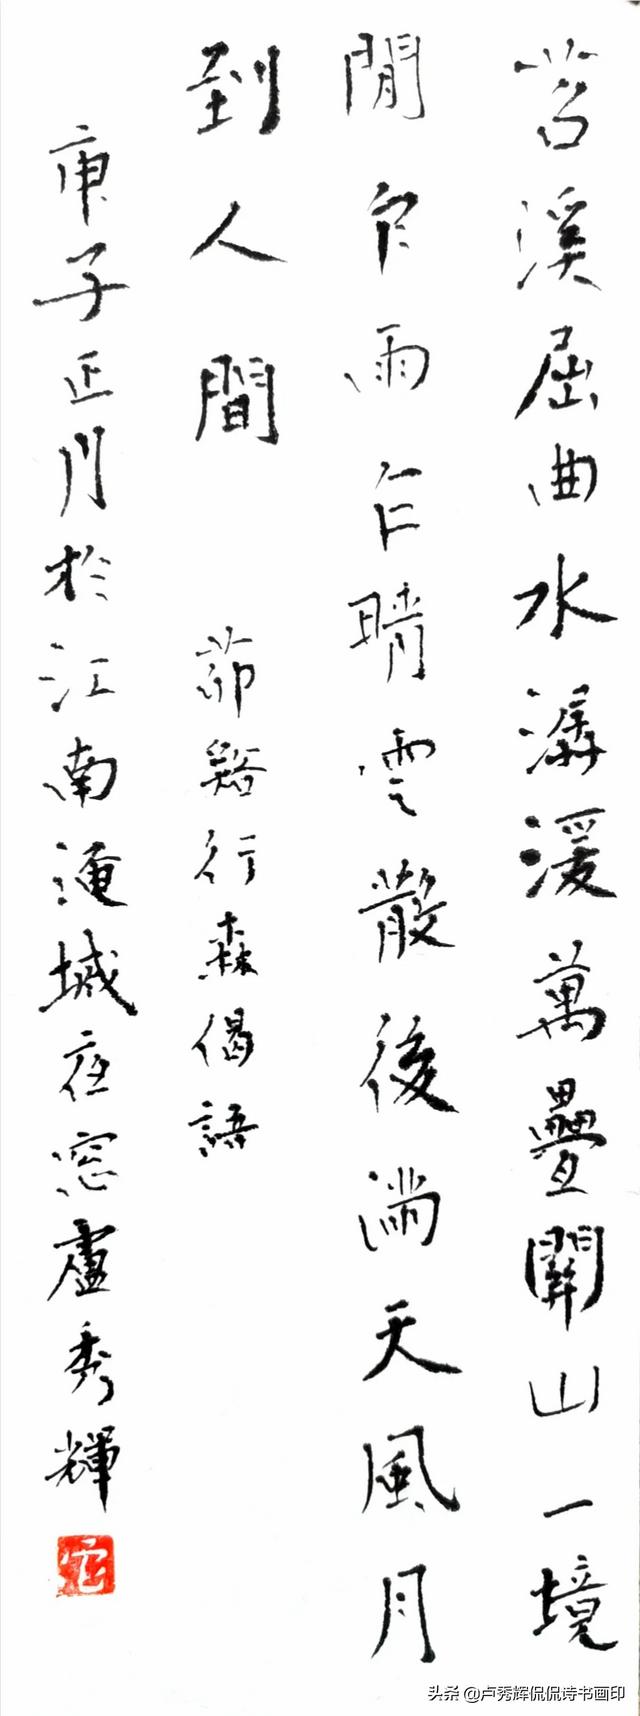 苕溪屈曲水潺湲萬疊關山一境
閒乍雨乍晴雲散後滿天風月
到人間 茆谿行森偈語
庚子正月於江南淹城夜窓盧秀輝
头条 @卢秀辉侃侃诗书画印